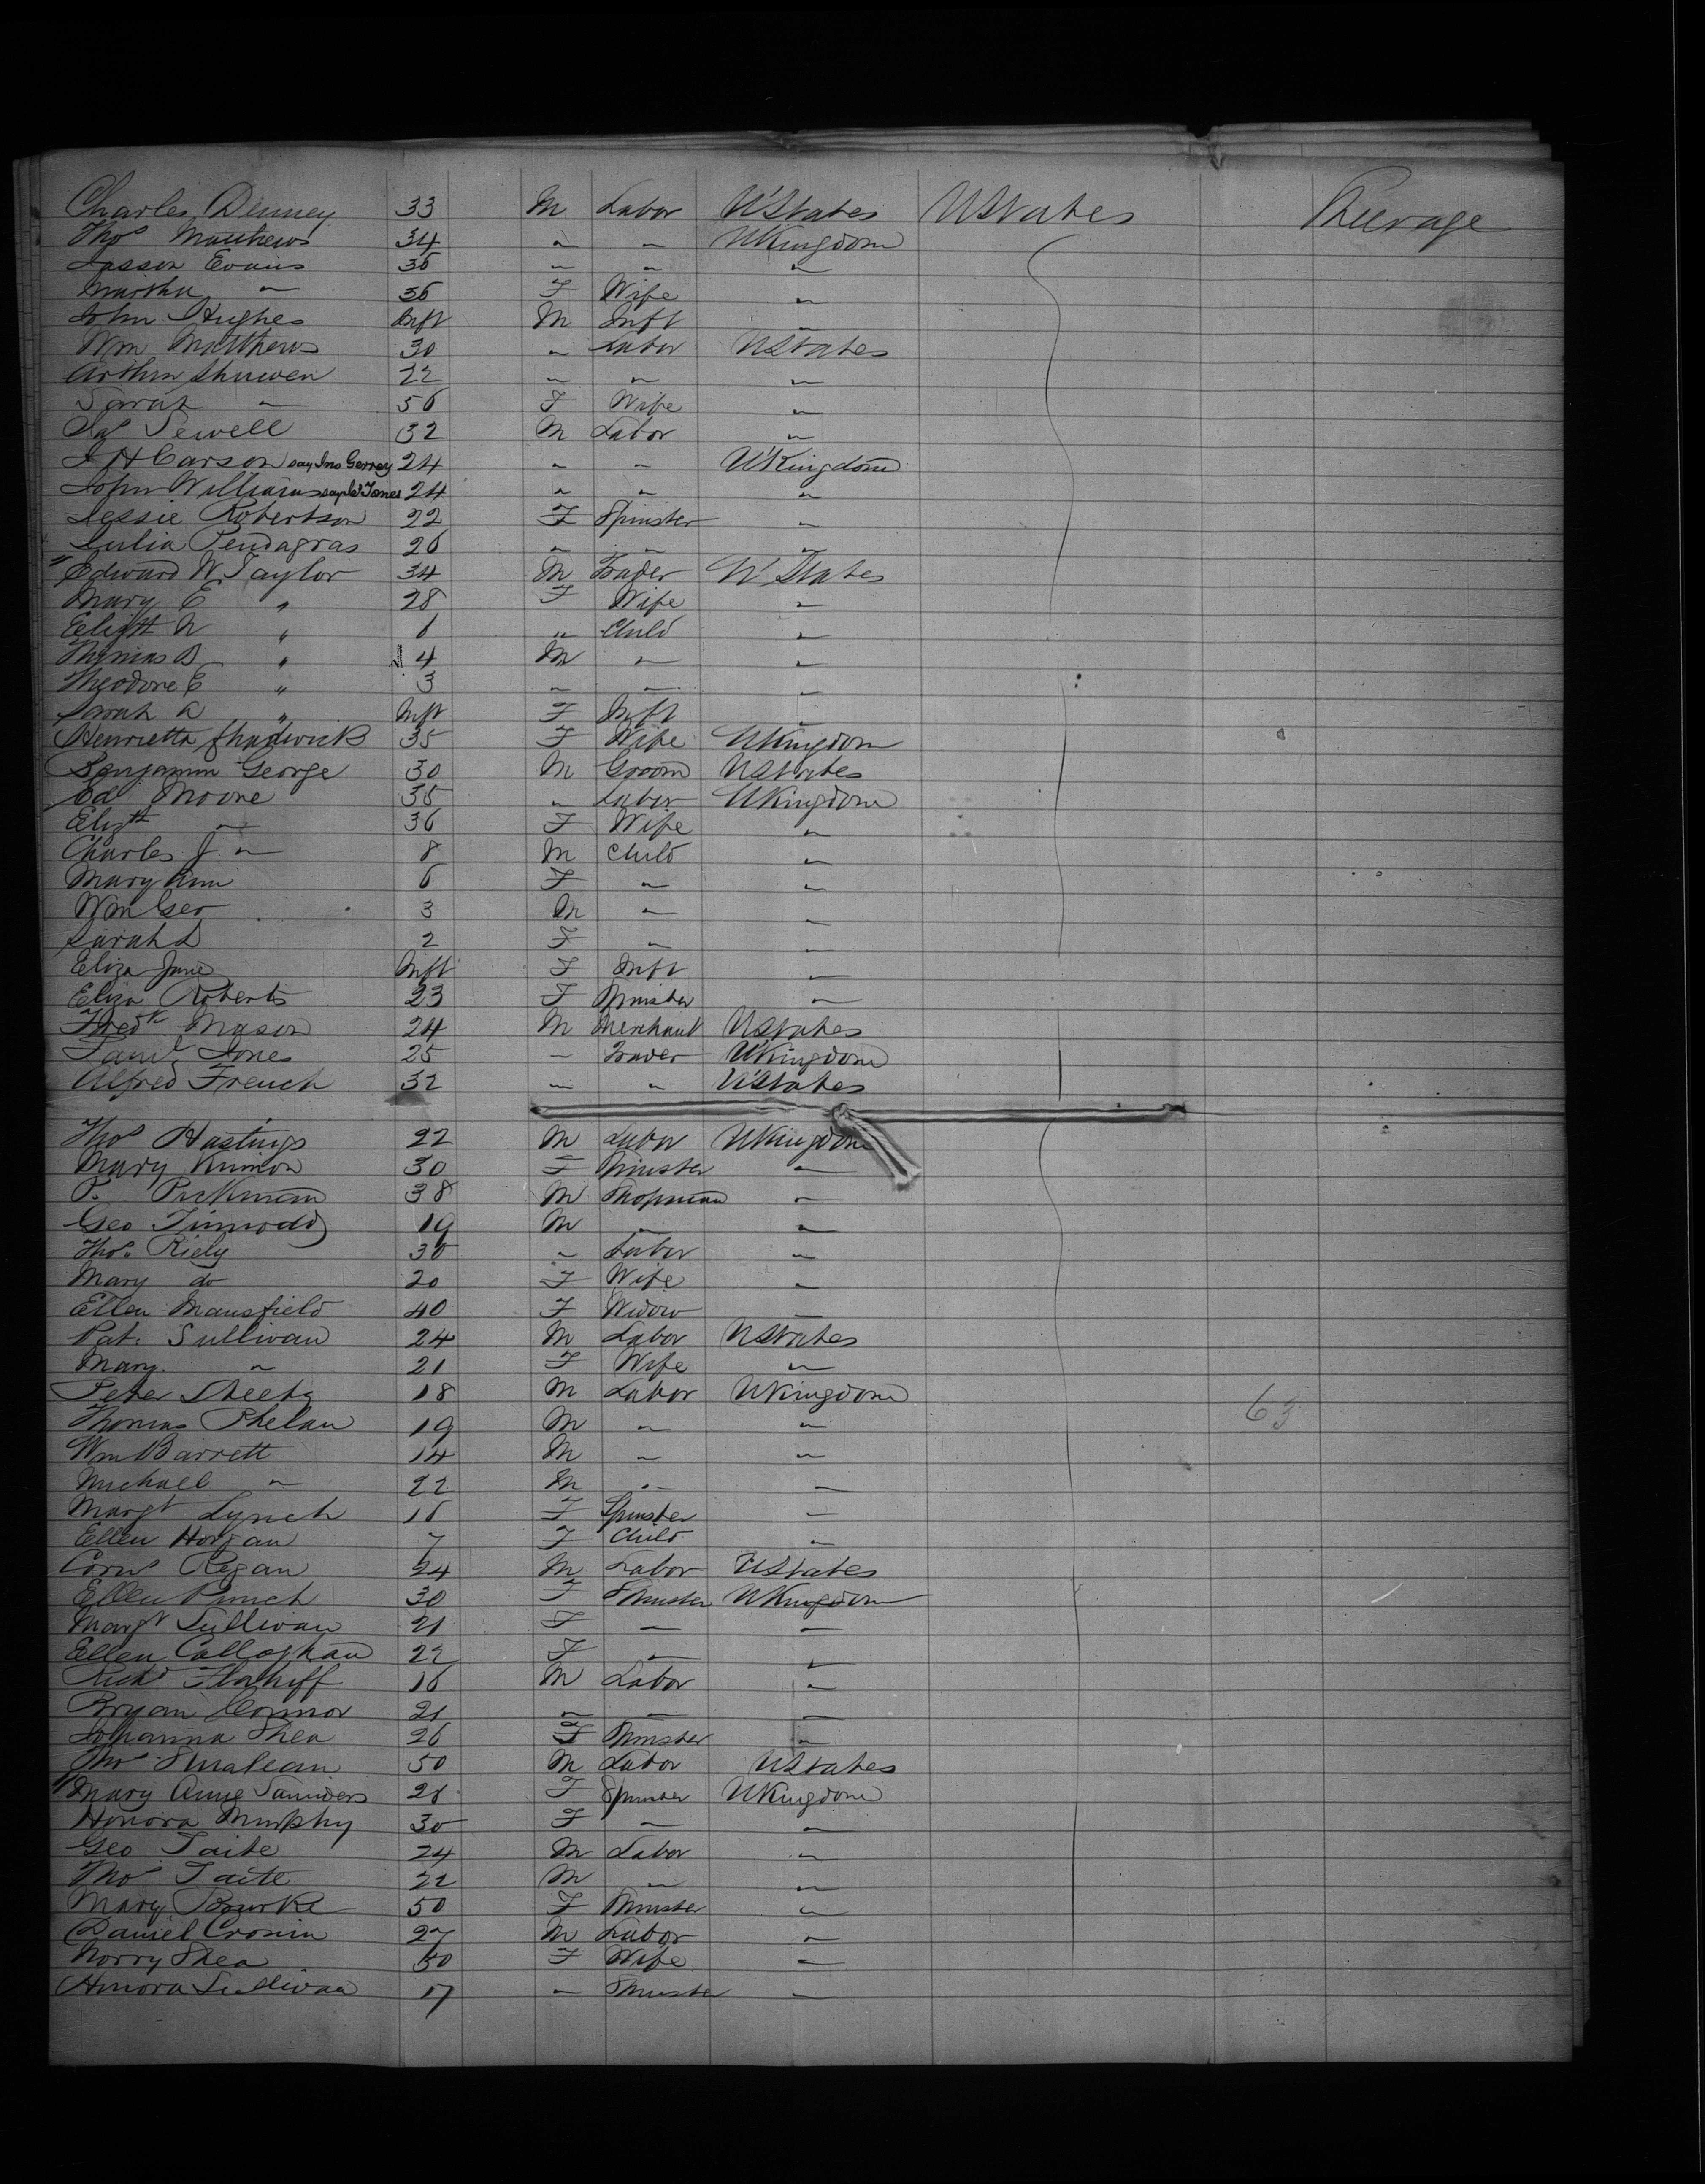 Charles Denney 33 M Labor U'States UStates Steerage
Thos Matthews 34 " " UKingdom
Evans 36 " " "
Martha " 36 F Wife "
John Hughes Inft M Inft "
Wm Matthews 30 " Labor UStates
Arthur 22 " " "
Sarah " 56 F Wife "
Sewell 32 M Labor "
J H Carson say Jno Gerrey 24 " " U'Kingdom
John Williams say Jones 24 " " "
Jessie Robertson 22 F Spinster "
Julia Pendagras 26 " " "
Edward W. Taylor 34 M Trader U'States
Mary E " 28 F Wife "
Elizth N " 6 " Child "
Thomas B " 4 M " "
Theodore E " 3 " " "
Sarah A " Inft F Inft "
Henrietta Shadwick 35 F Wife UKingdom
Benjamin George 30 M Groom UStates
Ed Moore 35 " Labor UKingdom
Elizth " 36 F Wife "
Charles J. " 8 M Child "
Mary Ann 6 F " "
Wm Geo 3 M " "
Sarah L 2 F " "
Eliza Jane Inft F Inft "
Eliza Roberts 23 F Spinster "
Fredk Mason 24 M Merchant UStates
Saml Jones 25 " Trader U'Kingdom
Alfred French 32 " " U'States
Thos Hastings 22 M Labor UKingdom
Mary 30 F Spinster "
P. 38 M Shopman "
Geo 19 M " "
Thos. Riely 30 " Labor "
Mary do 20 F Wife "
Ellen Mansfield 40 F Widow "
Pat. Sullivan 24 M Labor UStates
Mary. " 21 F Wife "
Peter Sheehy 18 M Labor UKingdom
Thomas Phelan 19 M " " 63
Wm Barrett 14 M " "
Michael " 22 M " "
Margt Lynch 16 F Spinster "
Ellen Horgan 7 F Child "
Corns Regan 24 M Labor UStates
Ellen Punch 30 F Spinster UKingdom
Margt Sullivan 21 F " "
Ellen Callaghan 22 F " "
Richd 16 M Labor "
Bryan Connor 21 " " "
Johanna Shea 26 F Spinster "
Thos 50 M Labor UStates
Mary Anne Saunders 21 F Spinster UKingdom
Honora Murphy 30 F " "
Geo Taite 24 M Labor "
Thos Taite 22 M " "
Mary Bourke 50 F Spinster "
Daniel Cronin 27 M Labor "
Norry Shea 50 F Wife "
Honora Sullivan 17 " Spinster "